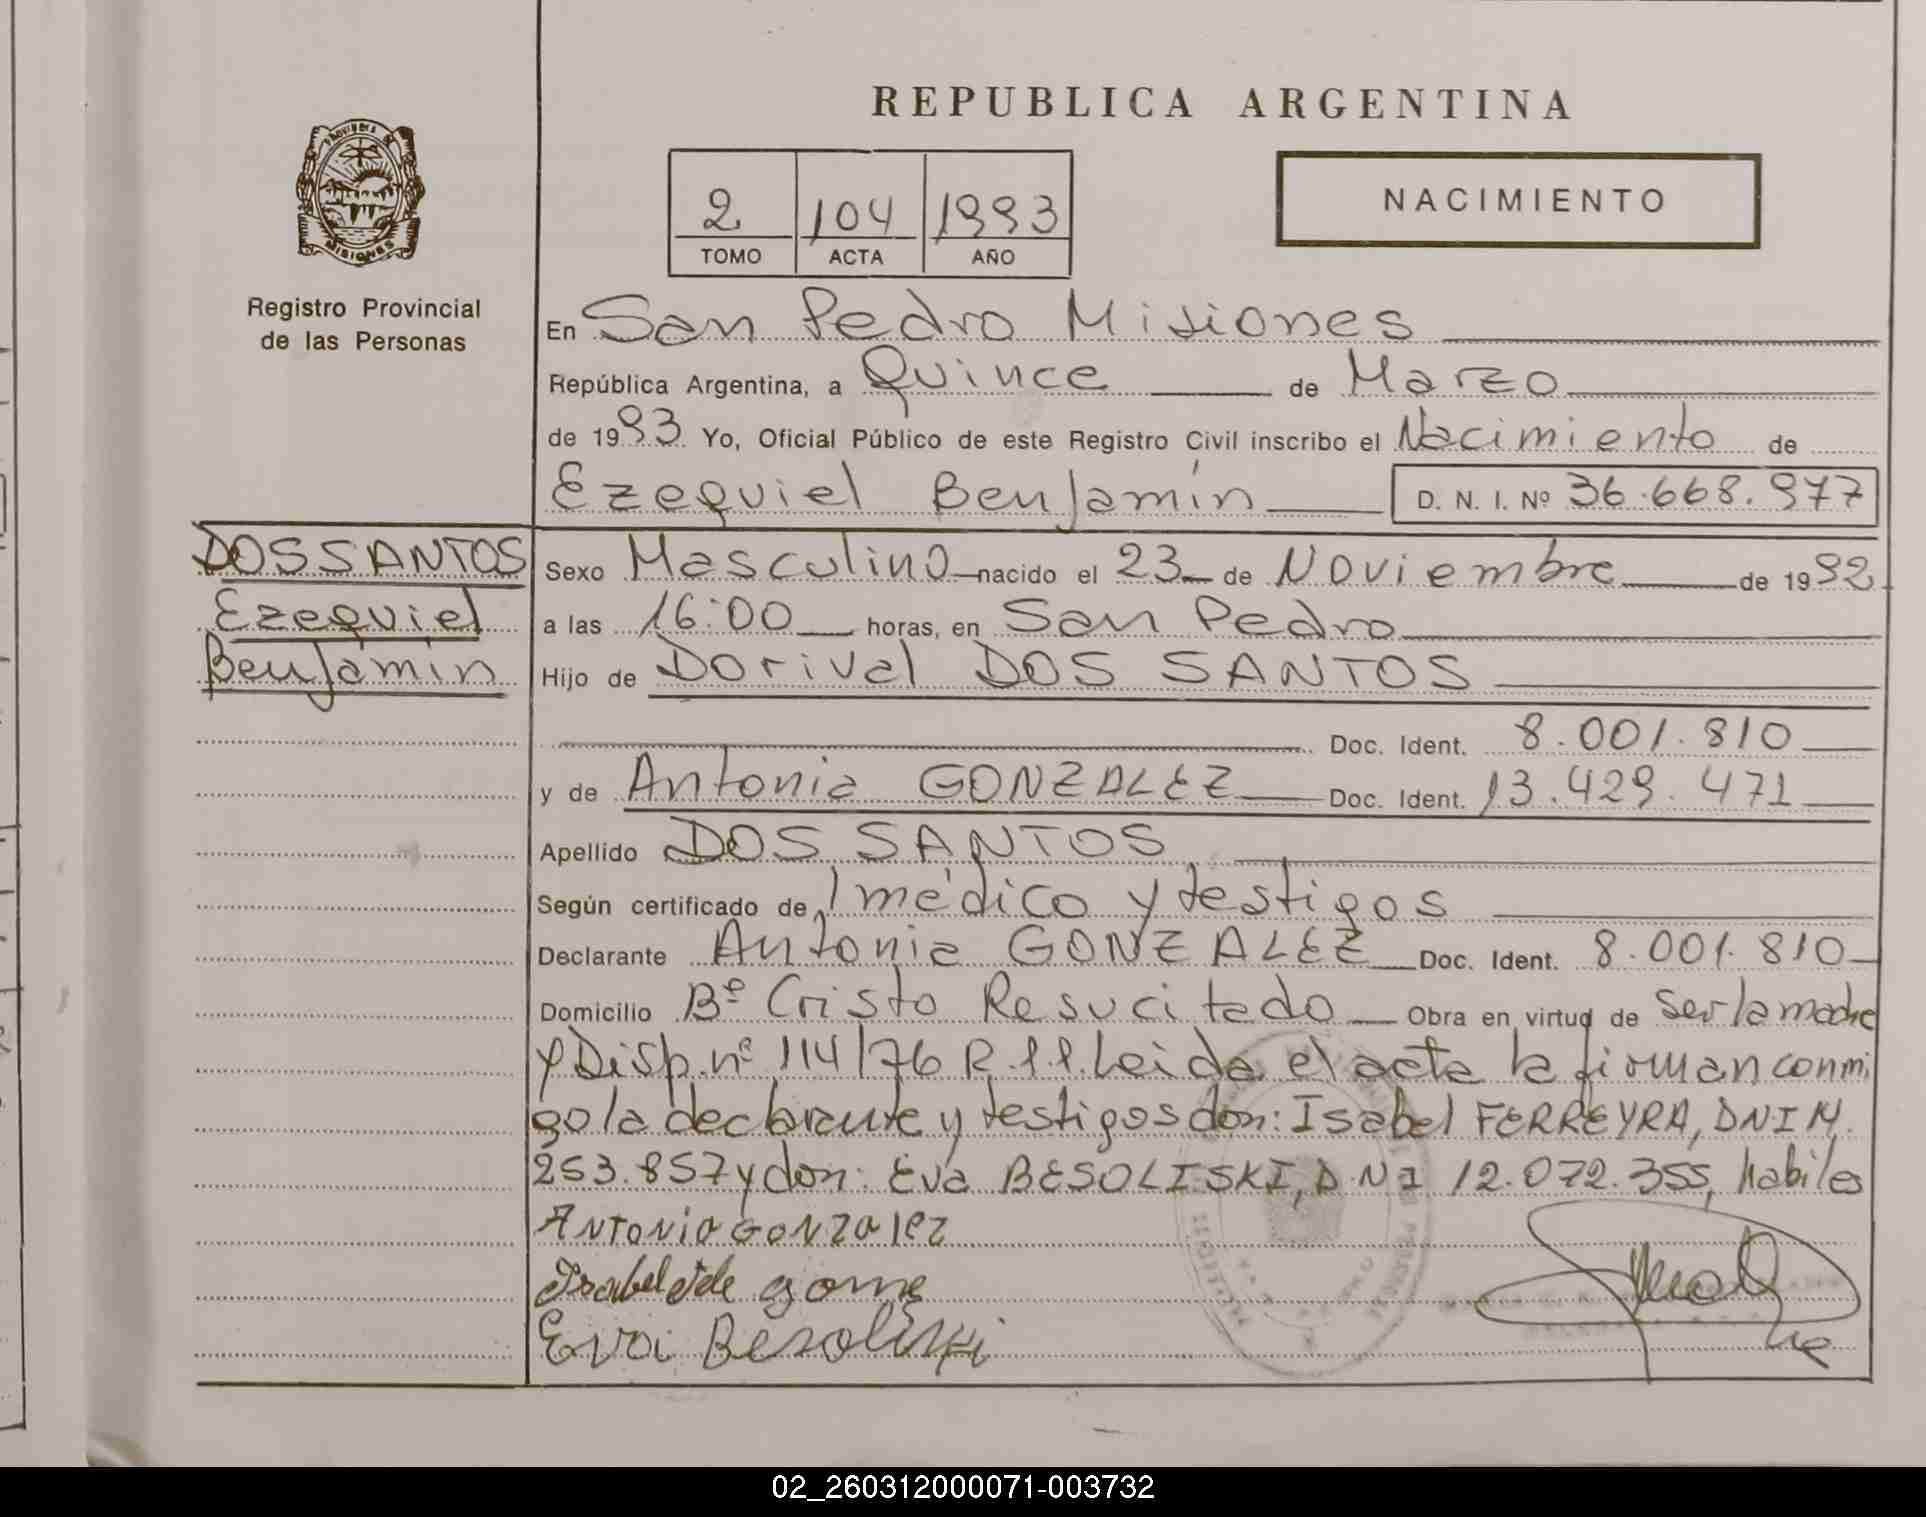 REPUBLICA ARGENTINA
Provincia de
MISIONES
Registro Provincial
de las Personas
2 104 1993
TOMO ACTA AÑO
NACIMIENTO
En San Pedro Misiones
República Argentina, a Quince de Marzo
de 1993 Yo, Oficial Público de este Registro Civil inscribo el Nacimiento de
Ezequiel Benjamín D. N. I. Nº 36.668.977
DOS SANTOS
Ezequiel
Benjamín
Sexo Masculino nacido el 23 de Noviembre de 1992
a las 16:00 horas, en San Pedro
Hijo de Dorival DOS SANTOS
Doc. Ident. 8.001.810
y de Antonia GONZALEZ Doc. Ident. 13.429.471
Apellido DOS SANTOS
Según certificado de 1 médico y testigos
Declarante Antonia GONZALEZ Doc. Ident. 8.001.810
Domicilio Bº Cristo Resucitado Obra en virtud de ser la madre
y Disp. nº 114/76 R.P.P. Leida el acta la firman conmi
go la declarante y testigos don: Isabel FERREYRA, DNI M.
253.857 y don: Eva BESOLISKI, DNI 12.072.355, habiles
ANTONIA GONZALEZ
Isabel de gome
Eva Besoliski
02_260312000071-003732